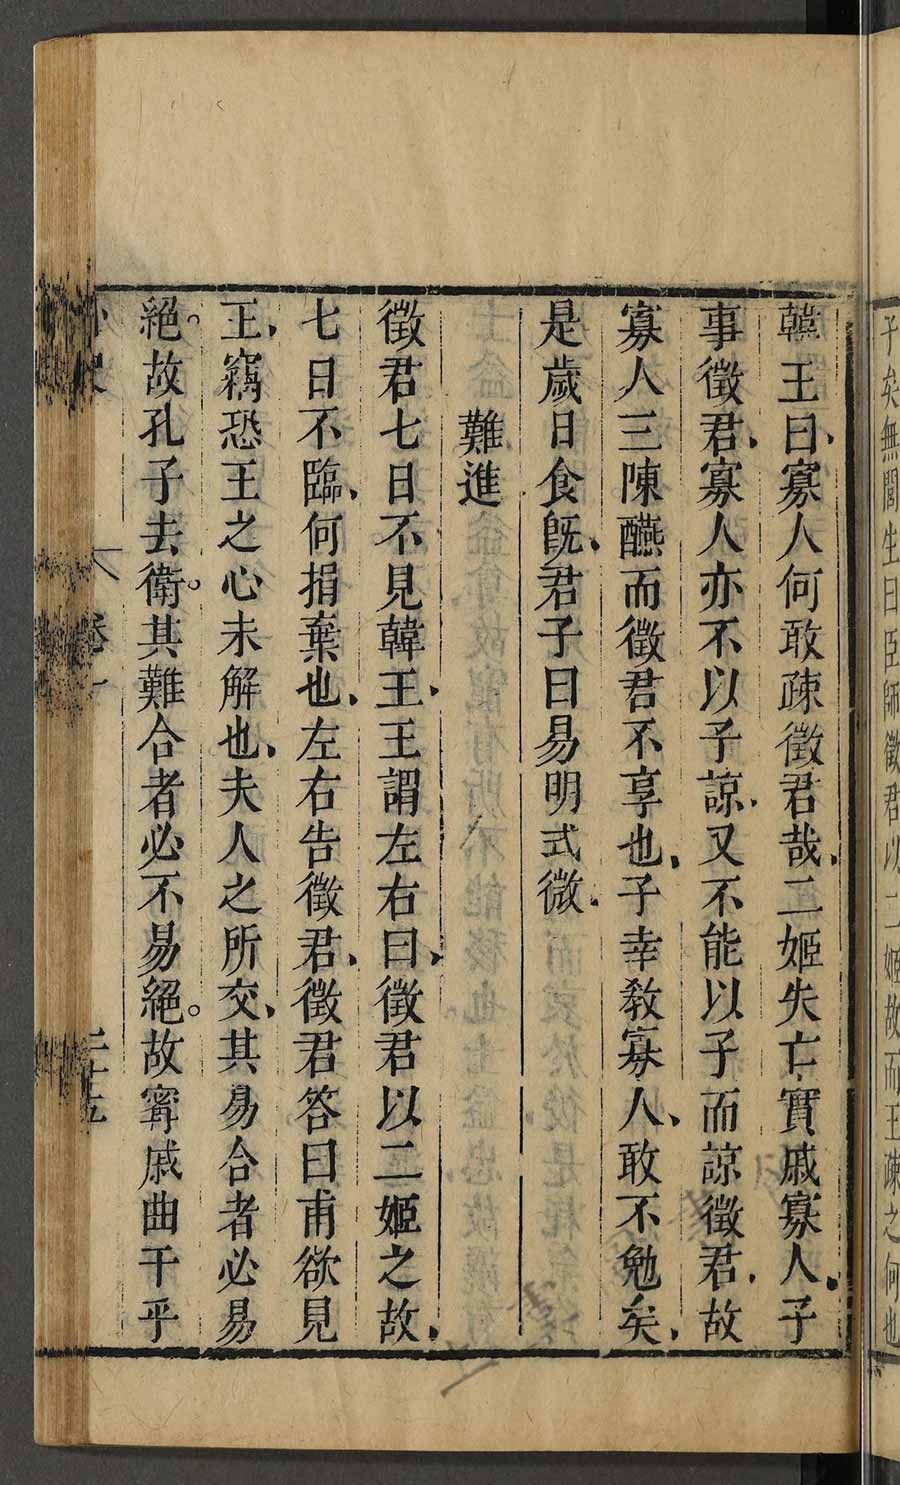 子矣無閭生曰臣師徵君以二姬故而王疎之何也
韓王曰寡人何敢疎徵君哉二姬失亡實戚寡人子
事徵君寡人亦不以子諒又不能以子而諒徵君故
寡人三陳醼而徵君不享也子幸敎寡人敢不勉矣
是歲日食旣君子曰易明式微
難進
徵君七日不見韓王王謂左右曰徵君以二姬之故
七日不臨何捐棄也左右告徵君徵君答曰甫欲見
王竊恐王之心未解也夫人之所交其易合者必易
絕故孔子去衛其難合者必不易絕故甯戚曲干乎
卷一
二十五